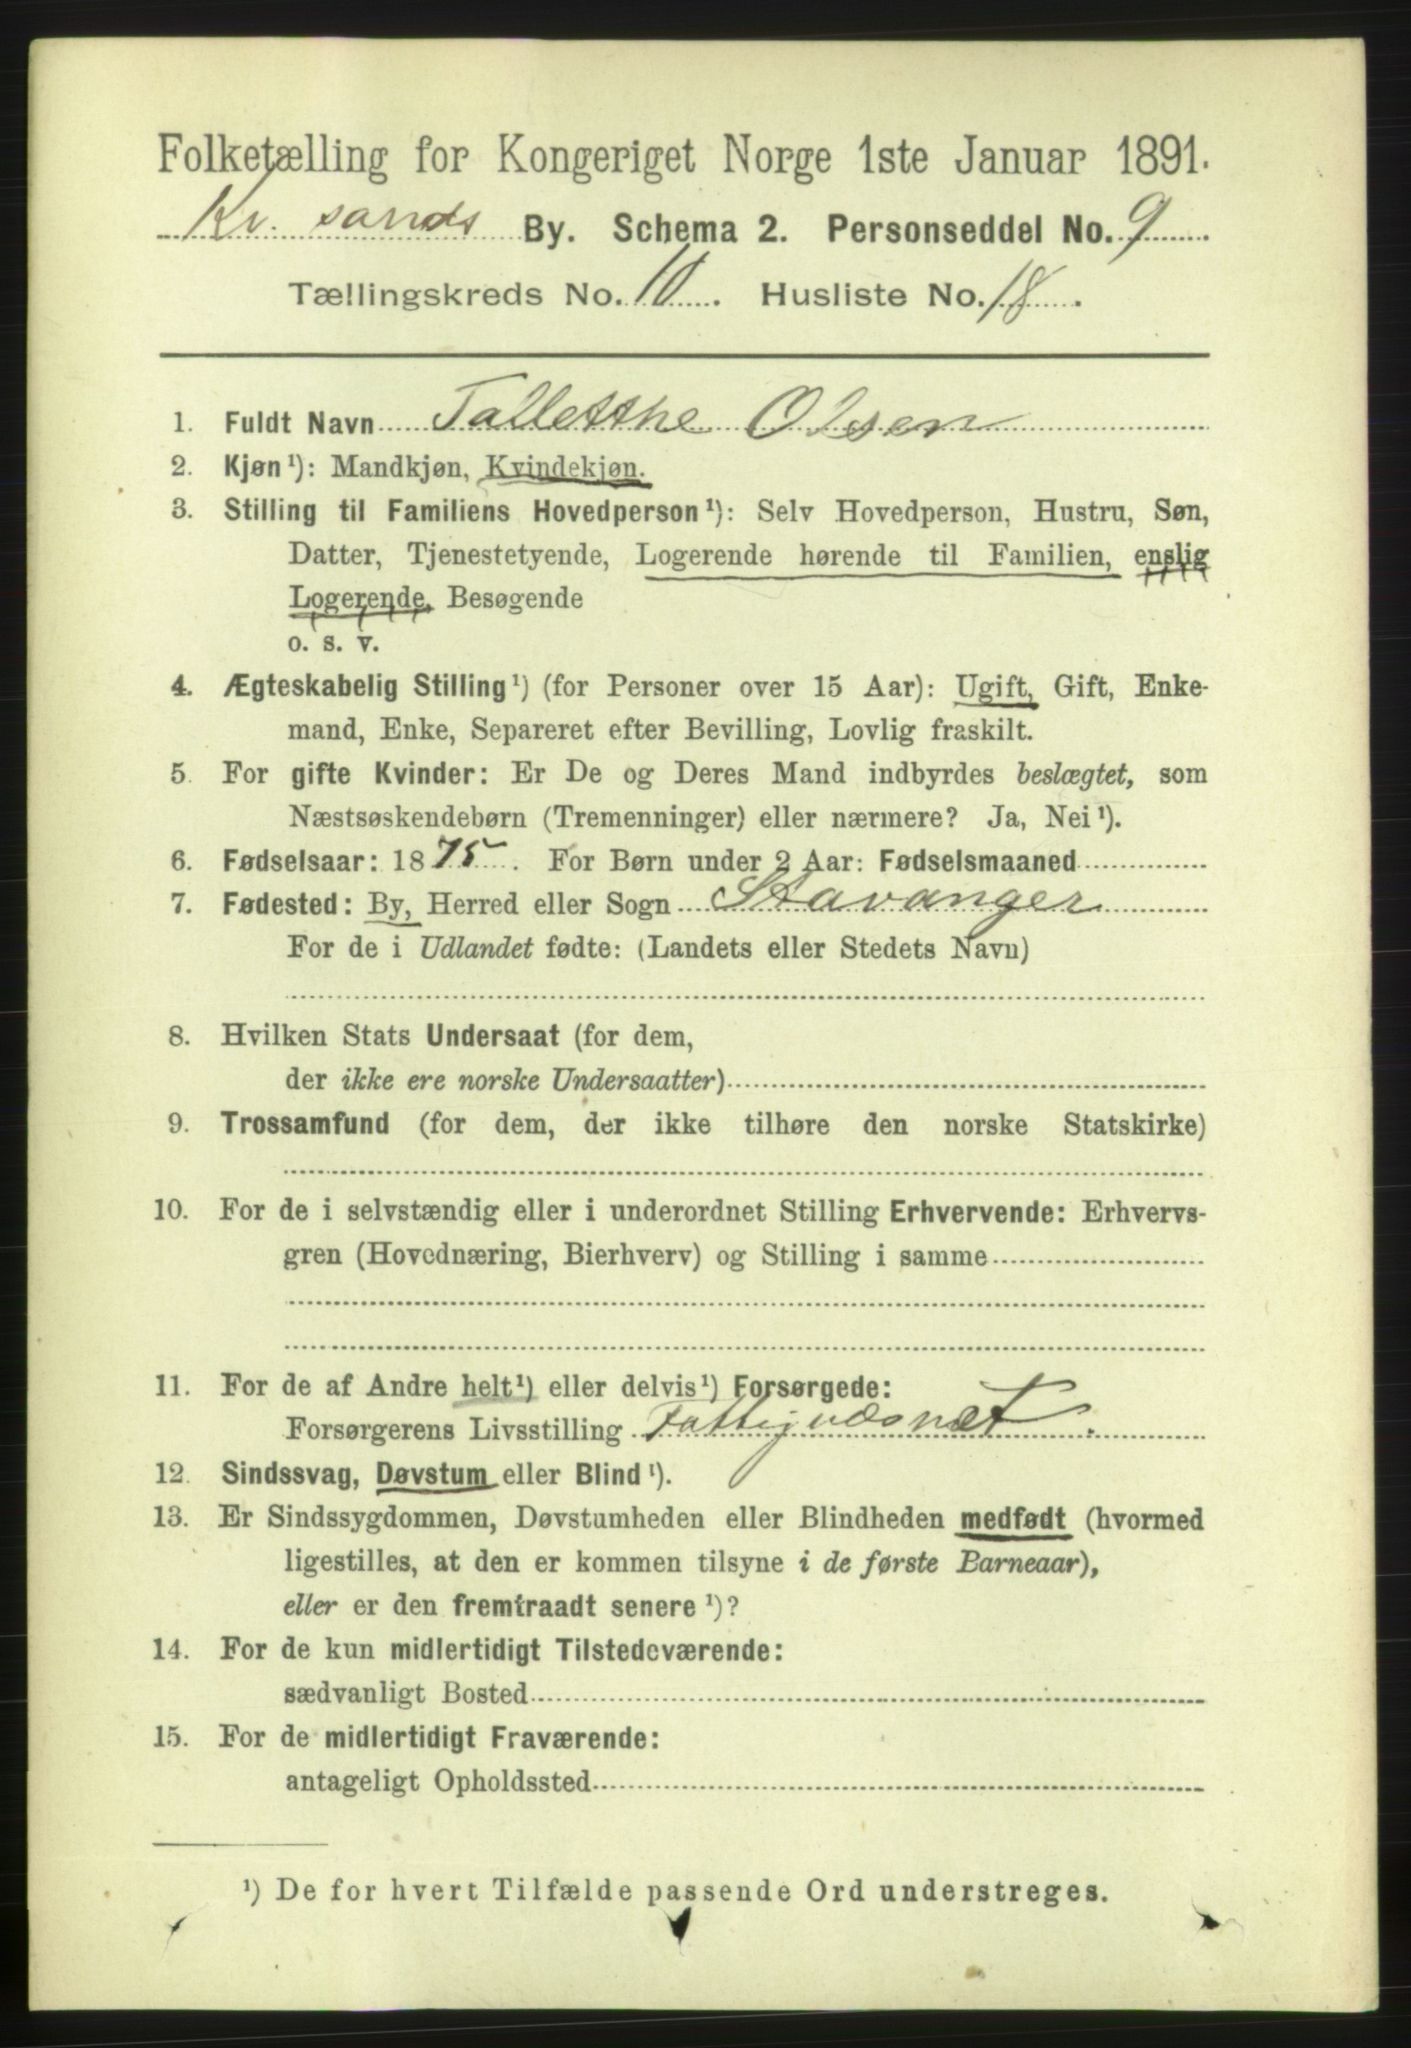 Folketælling for Kongeriget Norge 1ste Januar 1891.
Kr. sands By. Schema 2. Personseddel No. 9
Tællingskreds No. 10. Husliste No. 18.
1. Fuldt Navn Talletthe Olsen
2. Kjøn¹): Mandkjøn, Kvindekjøn.
3. Stilling til Familiens Hovedperson¹): Selv Hovedperson, Hustru, Søn,
Datter, Tjenestetyende, Logerende hørende til Familien, enslig
Logerende, Besøgende
o. s. v.
4. Ægteskabelig Stilling¹) (for Personer over 15 Aar): Ugift, Gift, Enke-
mand, Enke, Separeret efter Bevilling, Lovlig fraskilt.
5. For gifte Kvinder: Er De og Deres Mand indbyrdes beslægtet, som
Næstsøskendebørn (Tremenninger) eller nærmere? Ja, Nei¹).
6. Fødselsaar: 1875. For Børn under 2 Aar: Fødselsmaaned
7. Fødested: By, Herred eller Sogn Stavanger
For de i Udlandet fødte: (Landets eller Stedets Navn)
8. Hvilken Stats Undersaat (for dem,
der ikke ere norske Undersaatter)
9. Trossamfund (for dem, der ikke tilhøre den norske Statskirke)
10. For de i selvstændig eller i underordnet Stilling Erhvervende: Erhvervs-
gren (Hovednæring, Bierhverv) og Stilling i samme
11. For de af Andre helt¹) eller delvis¹) Forsørgede:
Forsørgerens Livsstilling Fattigvæsnet.
12. Sindssvag, Døvstum eller Blind¹).
13. Er Sindssygdommen, Døvstumheden eller Blindheden medfødt (hvormed
ligestilles, at den er kommen tilsyne i de første Barneaar),
eller er den fremtraadt senere¹)?
14. For de kun midlertidigt Tilstedeværende:
sædvanligt Bosted
15. For de midlertidigt Fraværende:
antageligt Opholdssted
¹) De for hvert Tilfælde passende Ord understreges.